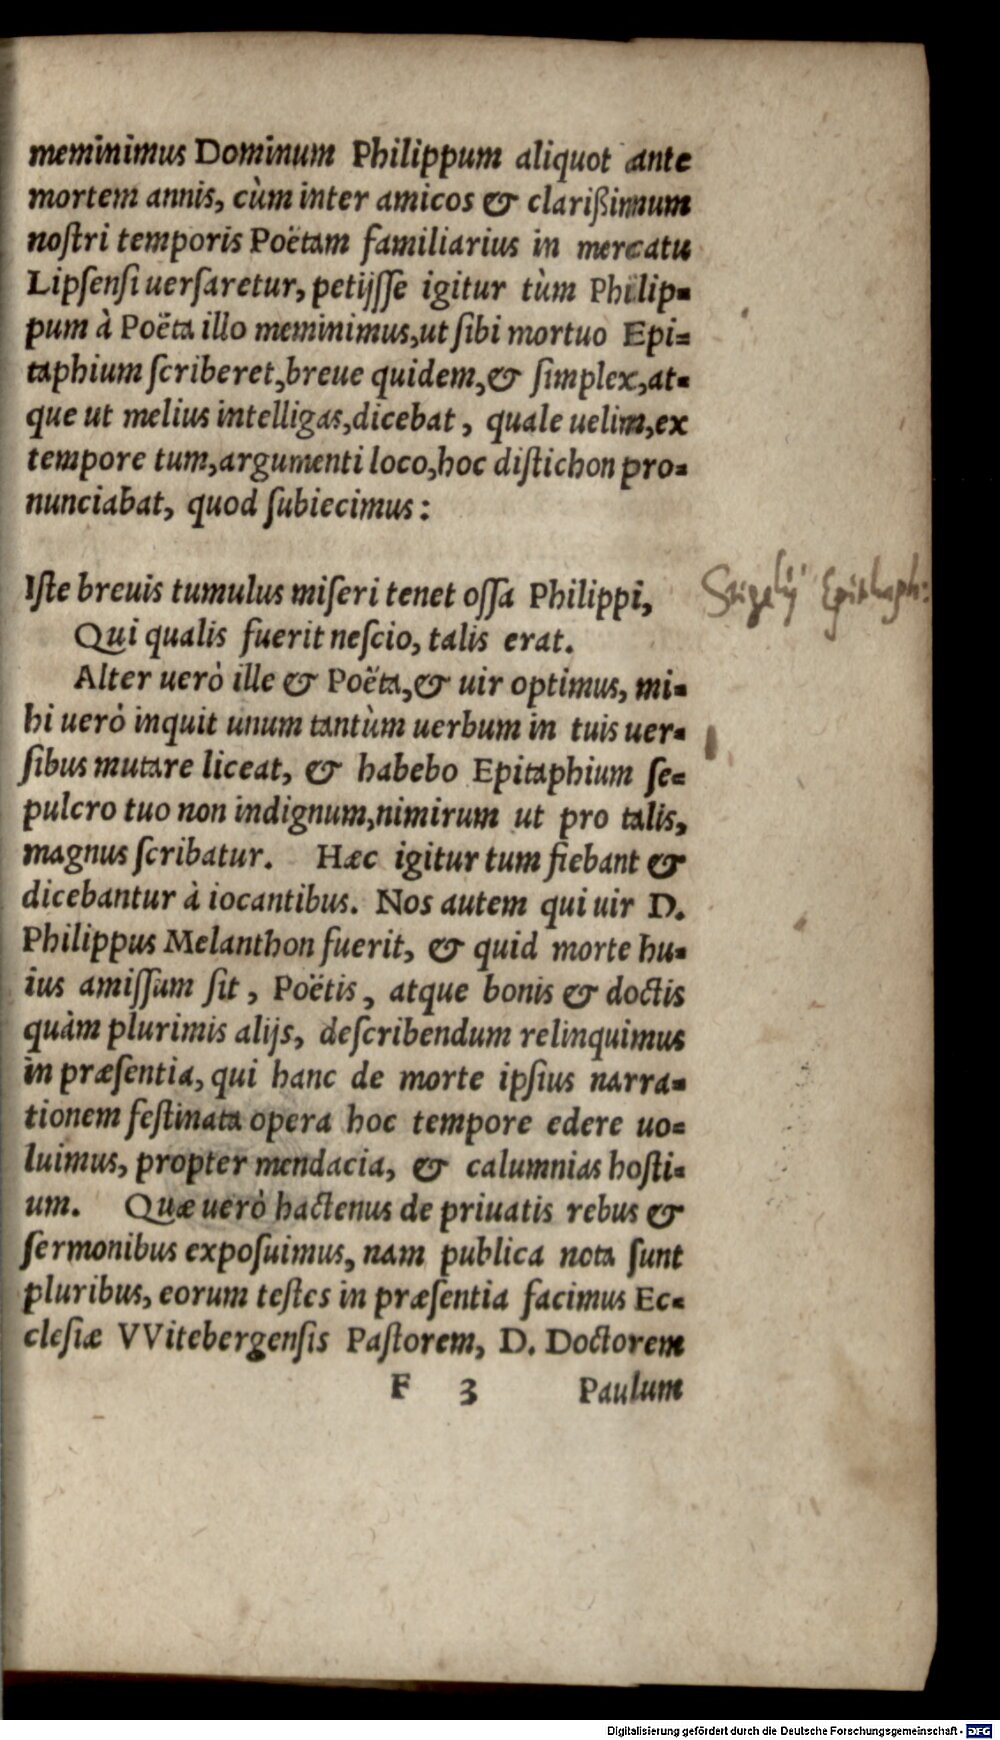 meminimus Dominum Philippum aliquot ante
mortem annis, cùm inter amicos & clarißimum
noſtri temporis Poëtam familiarius in mercatu
Lipſenſi uerſaretur, petijſſe igitur tùm Philip-
pum à Poëta illo meminimus, ut ſibi mortuo Epi-
taphium ſcriberet, breue quidem, & ſimplex, at-
que ut melius intelligas, dicebat, quale uelim, ex
tempore tum, argumenti loco, hoc diſtichon pro-
nunciabat, quod ſubiecimus:
Iſte breuis tumulus miſeri tenet oſſa Philippi,
Stigelij Epithaph:
Qui qualis fuerit neſcio, talis erat.
Alter uerò ille & Poëta, & uir optimus, mi-
hi uerò inquit unum tantùm uerbum in tuis uer-
ſibus mutare liceat, & habebo Epitaphium ſe-
pulcro tuo non indignum, nimirum ut pro talis,
magnus ſcribatur. Hæc igitur tum fiebant &
dicebantur à iocantibus. Nos autem qui uir D.
Philippus Melanthon fuerit, & quid morte hu-
ius amiſſum ſit, Poëtis, atque bonis & doctis
quàm plurimis alijs, deſcribendum relinquimus
in præſentia, qui hanc de morte ipſius narra-
tionem feſtinata opera hoc tempore edere uo-
luimus, propter mendacia, & calumnias hoſti-
um. Quæ uerò hactenus de priuatis rebus &
ſermonibus expoſuimus, nam publica nota ſunt
pluribus, eorum teſtes in præſentia facimus Ec-
cleſiæ VVitebergenſis Paſtorem, D. Doctorem
F 3 Paulum
Digitalisierung gefördert durch die Deutsche Forschungsgemeinschaft - DFG